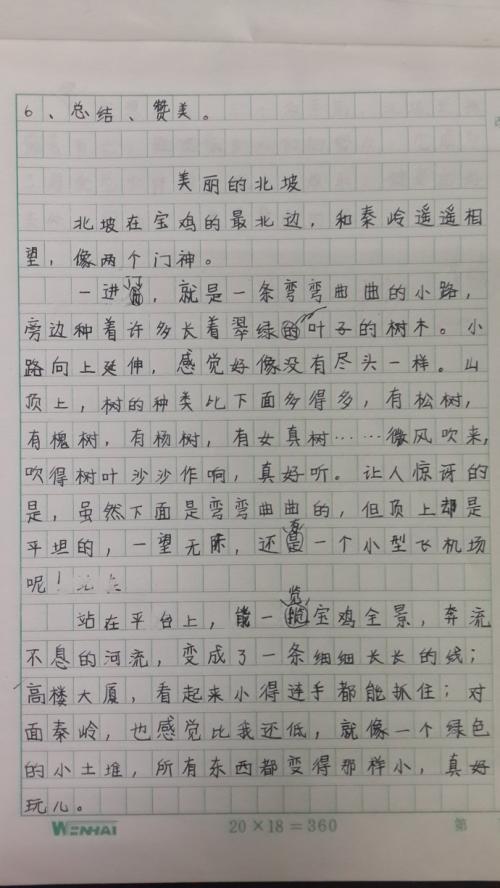 6、总结、赞美。
美丽的北坡
北坡在宝鸡的最北边，和秦岭遥遥相
望，像两个门神。
一进门，就是一条弯弯曲曲的小路，
旁边种着许多长着翠绿的叶子的树木。小
路向上延伸，感觉好像没有尽头一样。山
顶上，树的种类比下面多得多，有松树，
有槐树，有杨树，有女真树……微风吹来，
吹得树叶沙沙作响，真好听。让人惊讶的
是，虽然下面是弯弯曲曲的，但顶上却是
平坦的，一望无际，还有一个小型飞机场
呢！
站在平台上，能一览宝鸡全景，奔流
不息的河流，变成了一条细细长长的线；
高楼大厦，看起来小得连手都能抓住；对
面秦岭，也感觉比我还低，就像一个绿色
的小土堆，所有东西都变得那样小，真好
玩儿。
WENHAI 20×18=360 第